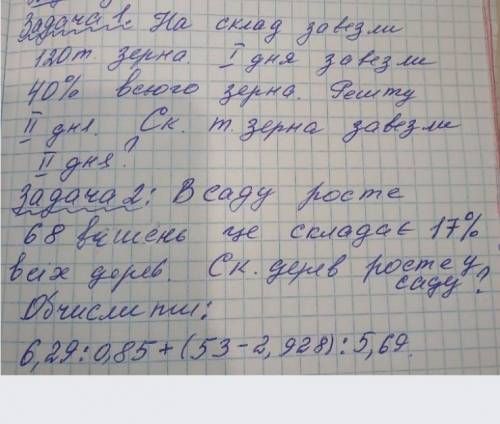 Задача 1. На склад завезли
120т. зерна. I дня завезли
40% всього зерна. Решту
II дня. Ск. т. зерна завезли
II дня?
Задача 2: В саду росте
68 вишень це складає 17%
всіх дерев. Ск. дерев росте у
саду?
Обчислити:
6,29:0,85+(53-2,928):5,69.